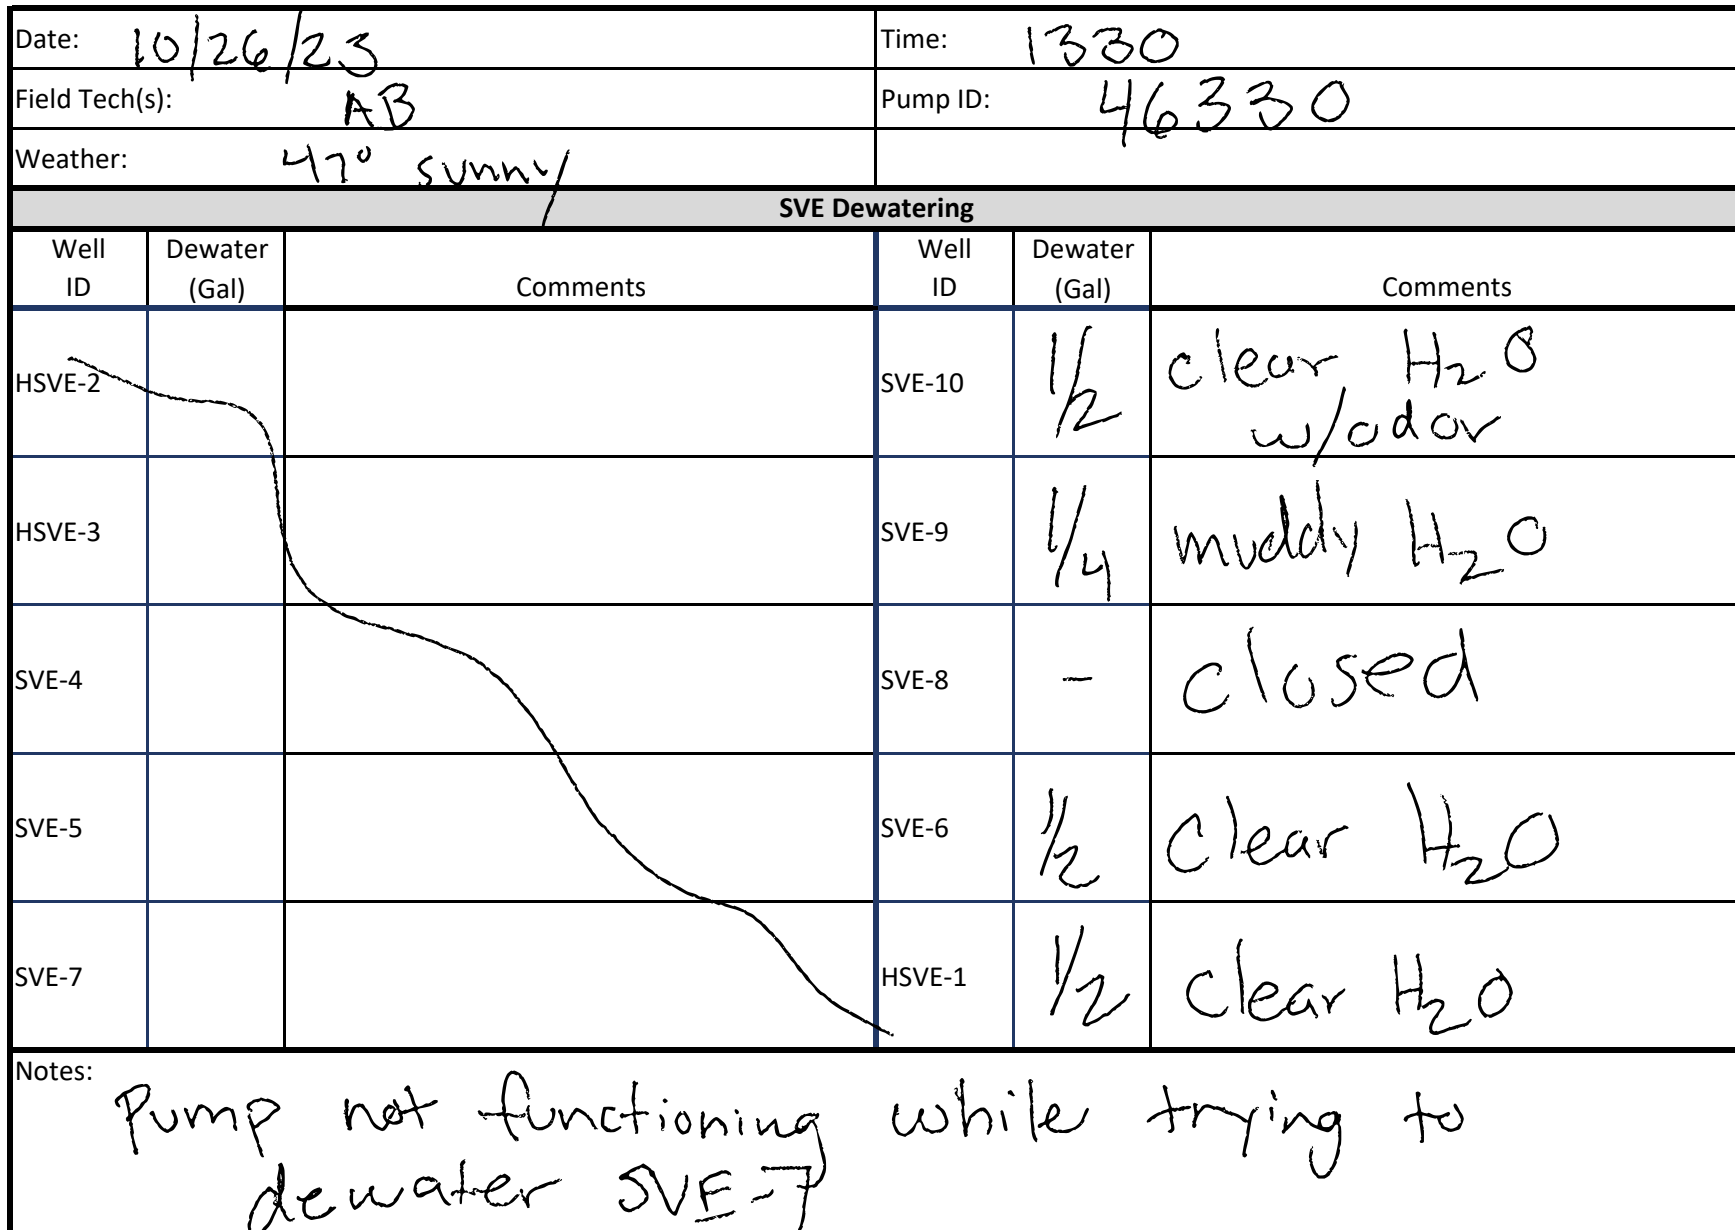 Date: 10/26/23 Time: 1330
Field Tech(s): AB Pump ID: 46330
Weather: 47° sunny
SVE Dewatering
Well ID Dewater (Gal) Comments Well ID Dewater (Gal) Comments
HSVE-2 SVE-10 1/2 clear H2O
w/odor
HSVE-3 SVE-9 1/4 muddy H2O
SVE-4 SVE-8 - closed
SVE-5 SVE-6 1/2 clear H2O
SVE-7 HSVE-1 1/2 clear H2O
Notes:
Pump not functioning while trying to
dewater SVE-7